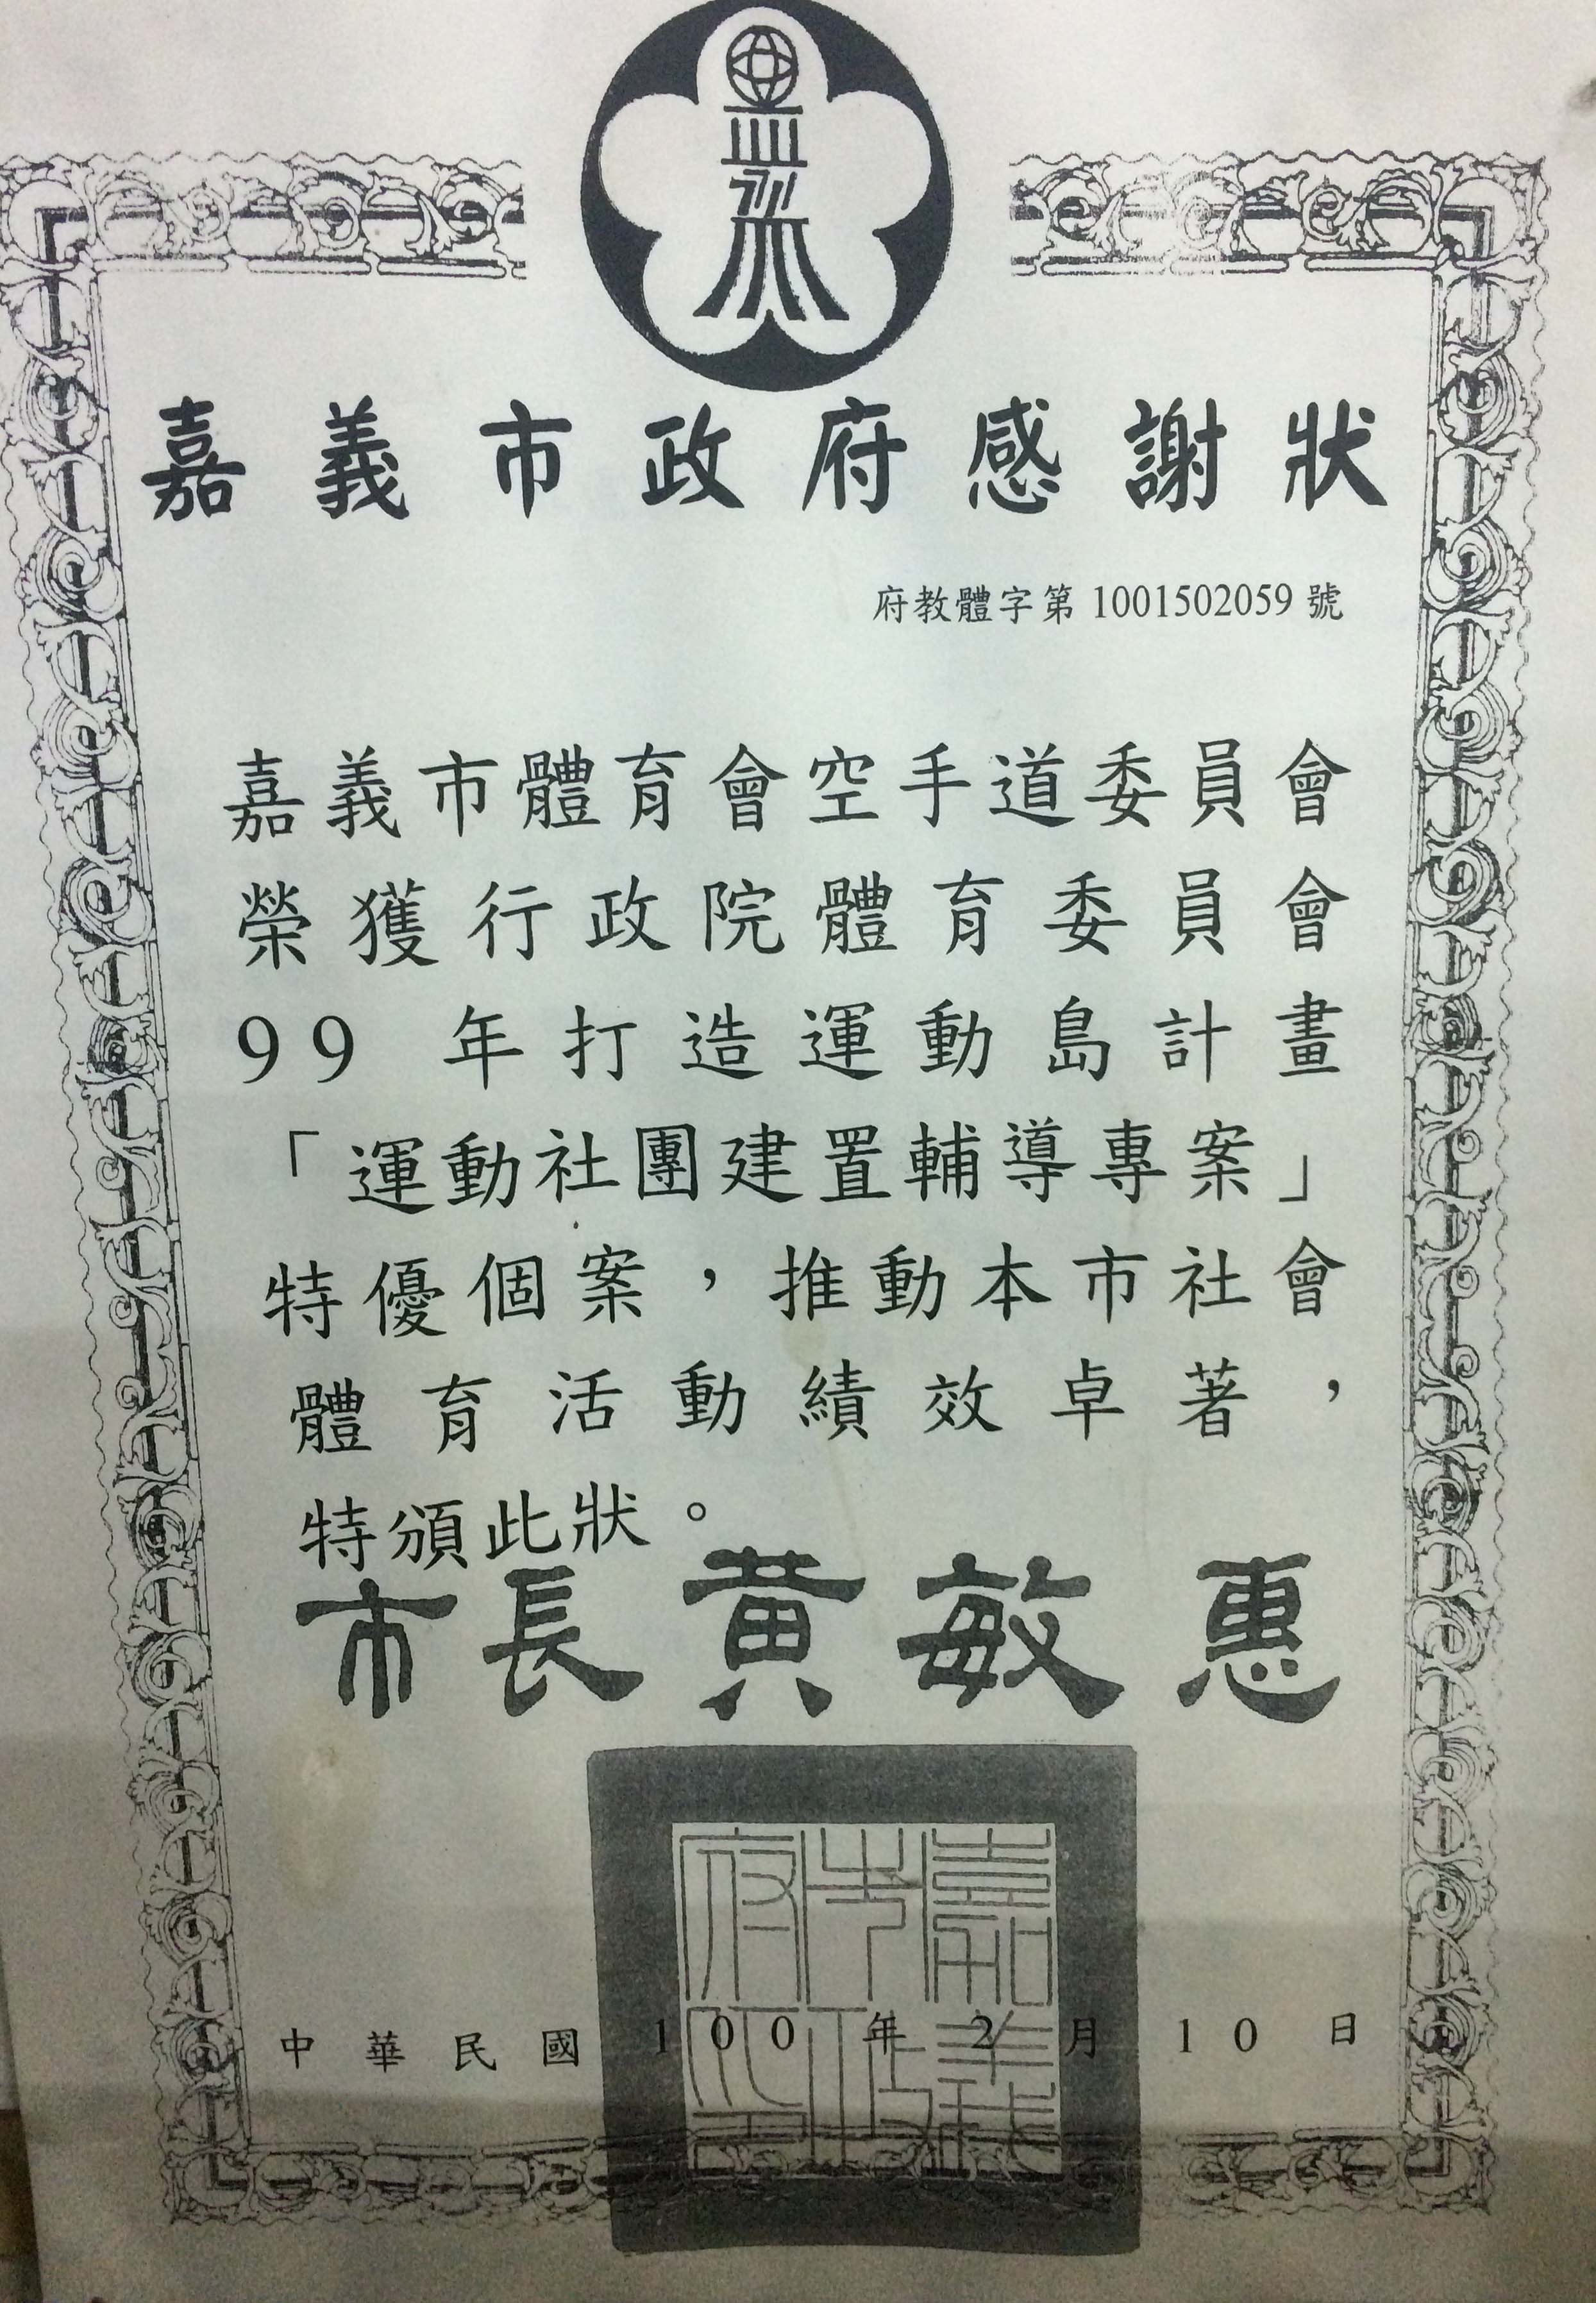 嘉義市政府感謝狀
府教體字第 1001502059 號
嘉義市體育會空手道委員會
榮獲行政院體育委員會
99 年打造運動島計畫
「運動社團建置輔導專案」
特優個案，推動本市社會
體育活動績效卓著，
特頒此狀。
市長黃敏惠
嘉義市政府印
中華民國 100 年 2 月 10 日